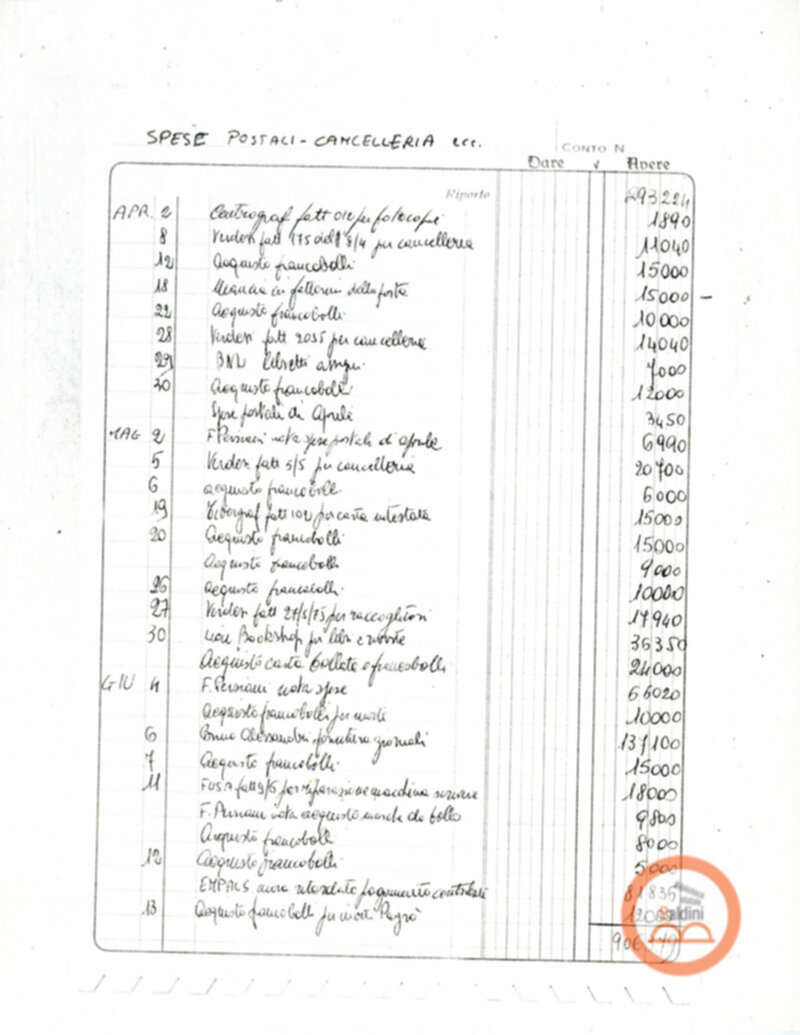 SPESE POSTALI - CANCELLERIA ecc.
CONTO N.
Dare v Avere
Riporto 293224
APR. 2 Centrograf fatt 012 per fotocopie 1890
8 Verdesi fatt 175 dell' 8/4 per cancelleria 11040
12 Acquisto francobolli 15000
18 Mancia ai fattorini della posta 15000 –
22 Acquisto francobolli 10000
28 Verdesi fatt 2035 per cancelleria 14040
29 BNL libretti assegni 7000
30 Acquisto francobolli 12000
Spese postali di Aprile 3450
MAG 2 F. Persiani nota spese postali di aprile 6990
5 Verdesi fatt 5/5 per cancelleria 20700
6 acquisto francobolli 6000
19 fatt 102 per carta intestata 15000
20 Acquisto francobolli 15000
Acquisto francobolli 9000
26 Acquisto francobolli 10000
27 Verdesi fatt 27/5/75 per raccoglitori 17940
30 Lion Bookshop per libri e riviste 36350
Acquisto carta bollata e francobolli 24000
GIU 4 F. Persiani nota spese 66020
Acquisto francobolli per inviti 10000
6 Bruno Alessandri fornitura giornali 137100
7 Acquisto francobolli 15000
11 fatt 9/6 per riparazione macchina scrivere 18000
F. Persiani nota acquisto marche da bollo 9800
Acquisto francobolli 8000
12 Acquisto francobolli 5000
EMPALS mora ritardato pagamento contributi 81835
13 Acquisto francobolli per inviti "Pagrò"
Biblioteca
Baldini